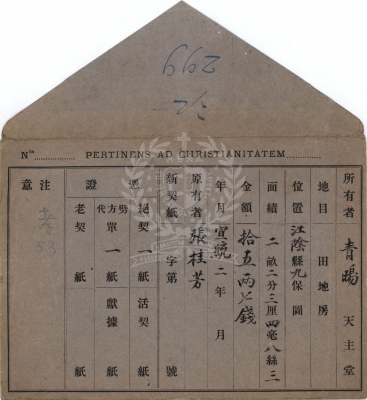 299
Nus PERTINENS AD CHRISTIANITATEM
所有者 青暘 天主堂
地目 田地房
位置 江陰縣九保圖
面積 二畝二分三厘四毫八絲三
金額 拾五兩七錢
年月 宣統二年 月
原有者 張桂芳
新契紙 字第 號
憑證
絕契 一 紙 活契 紙
代方 單 一 紙 獻據 紙
老契 紙
注意